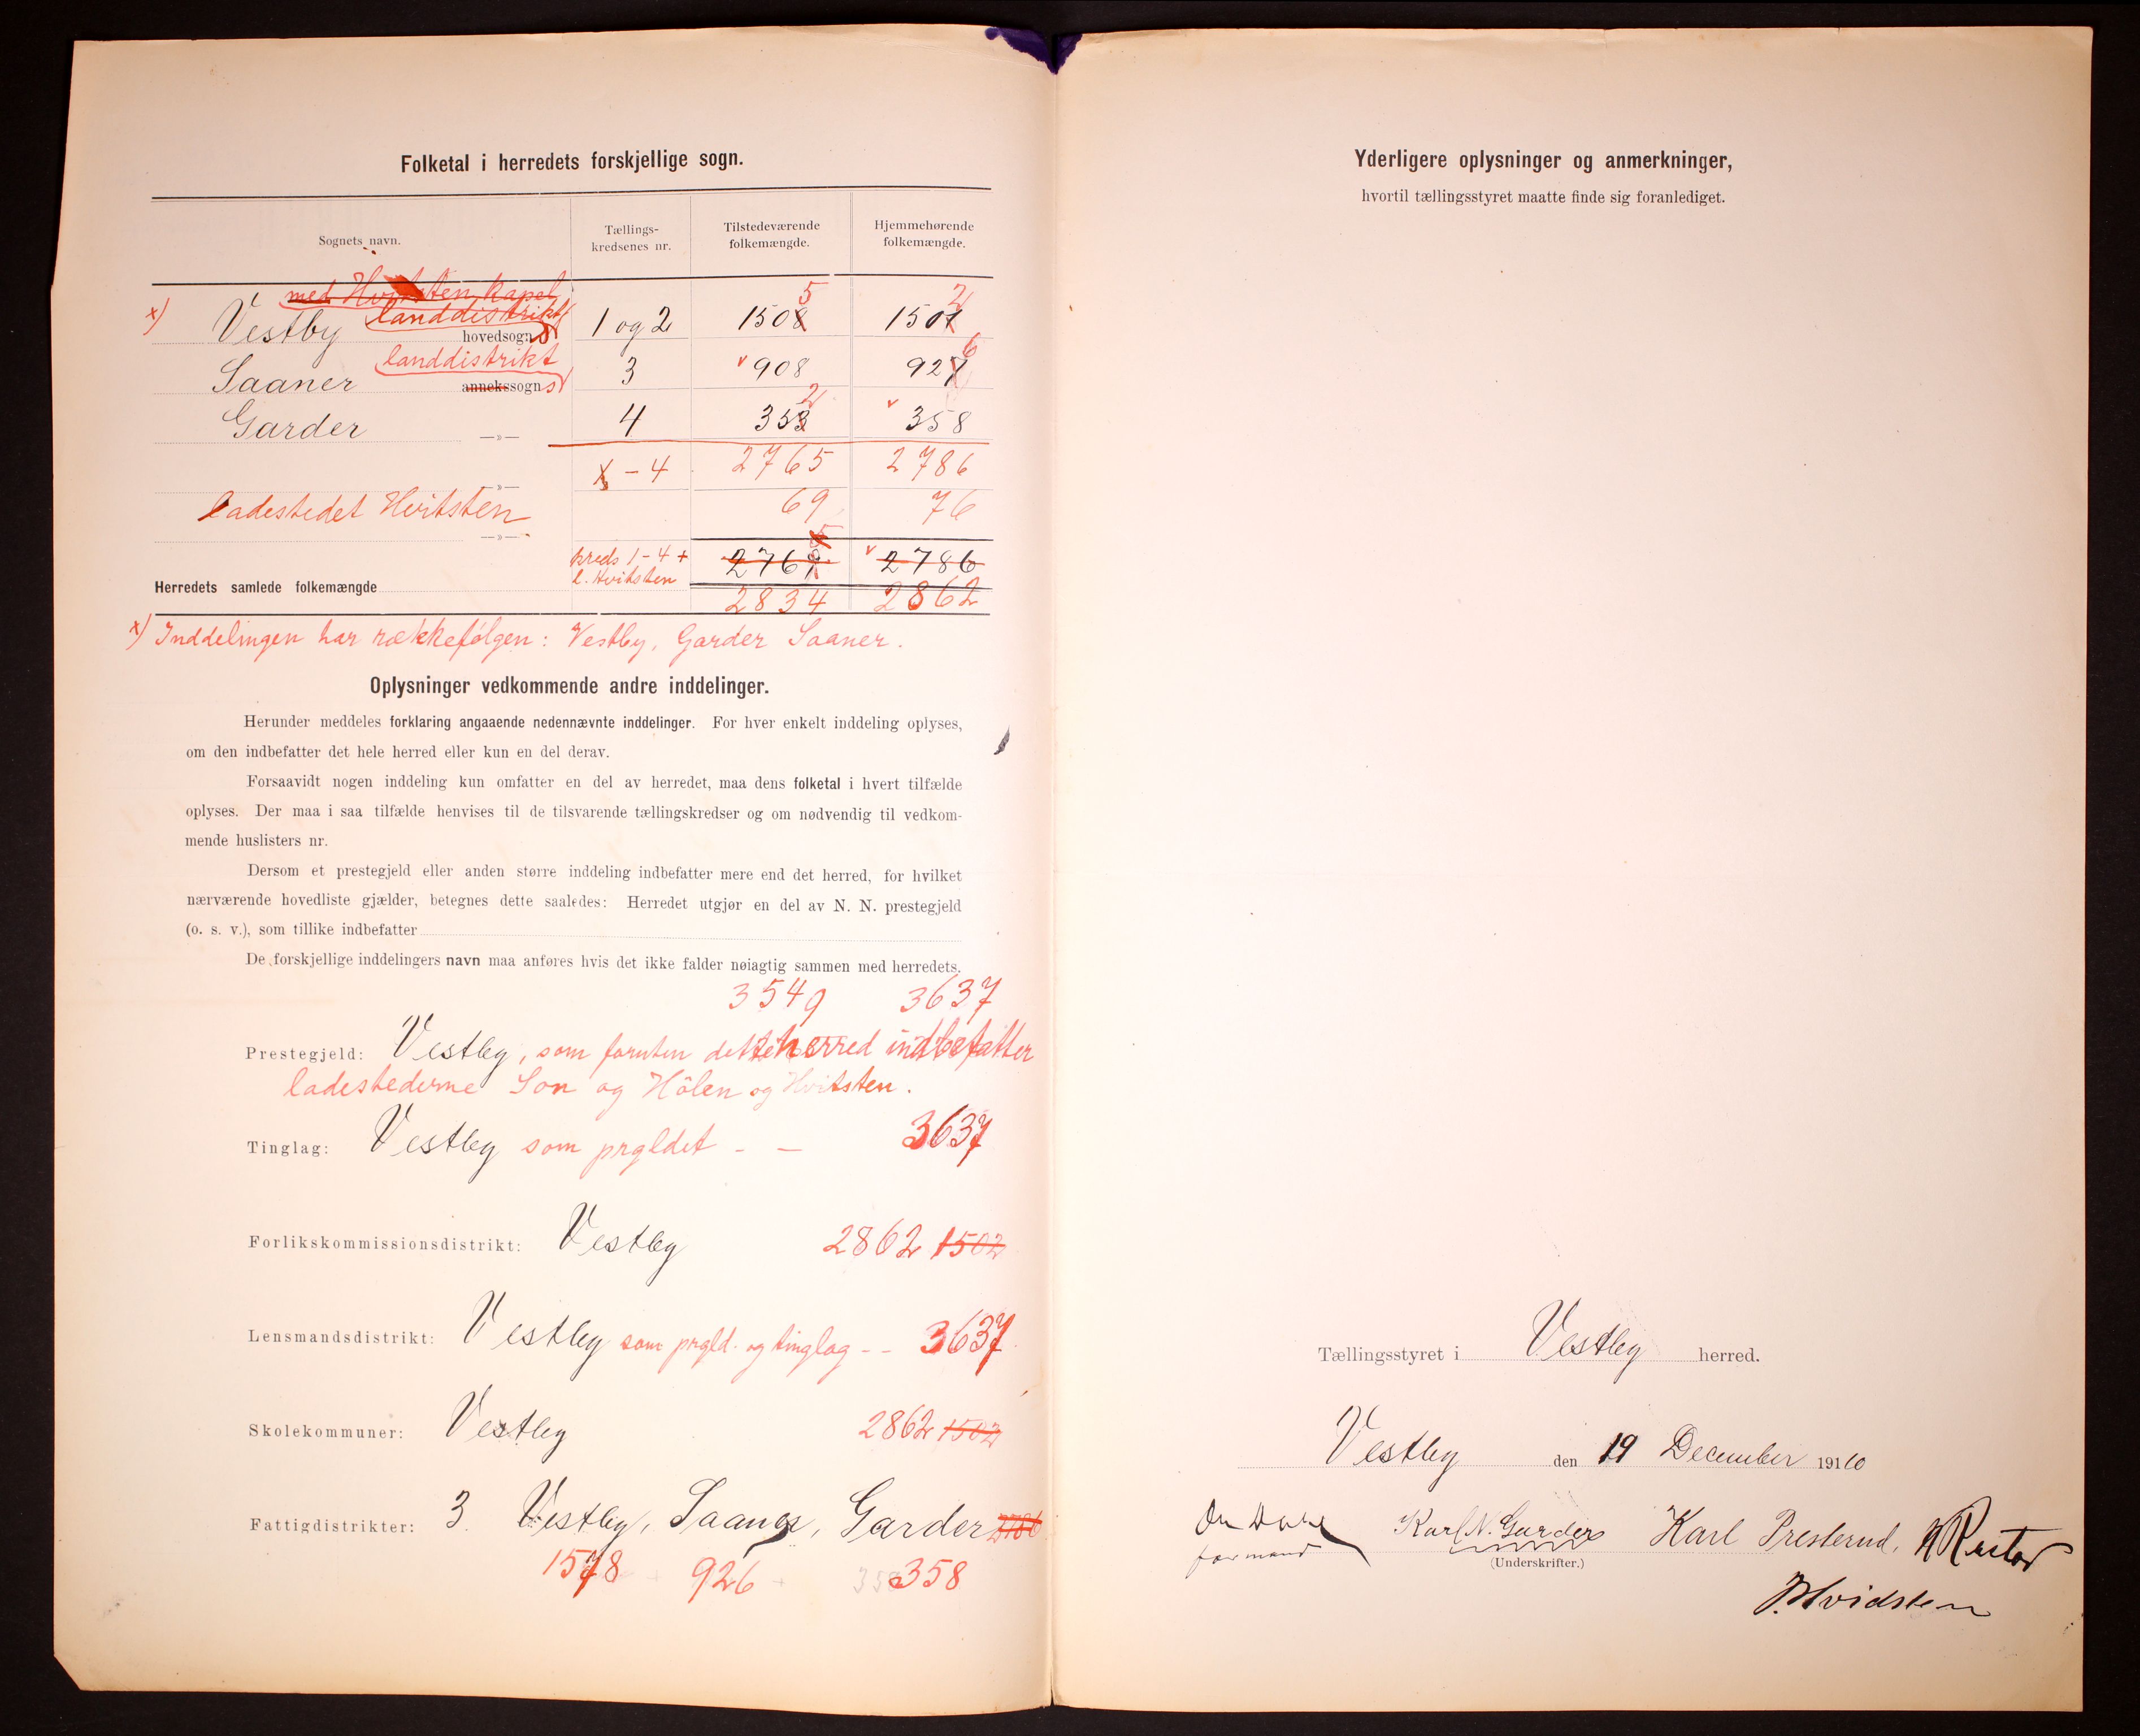 Folketal i herredets forskjellige sogn.
Sognets navn.
Tællings-
kredsenes nr.
Tilstedeværende
folkemængde.
Hjemmehørende
folkemængde.
med Hvitsten kapel
x) Vestby landdistrikt hovedsogn 1 og 2 1508 5 1501 2
Saaner landdistrikt annekssogns 3 v 908 927 6
Garder —»— 4 353 2 v 358
—»— 1 - 4 2765 2786
ladestedet Hvitsten —»— 69 76
Herredets samlede folkemængde kreds 1-4 + 2769 5 v 2786
l. Hvitsten 2834 2862
x) Inddelingen har rækkefølgen: Vestby, Garder Saaner.
Oplysninger vedkommende andre inddelinger.
Herunder meddeles forklaring angaaende nedennævnte inddelinger. For hver enkelt inddeling oplyses,
om den indbefatter det hele herred eller kun en del derav.
Forsaavidt nogen inddeling kun omfatter en del av herredet, maa dens folketal i hvert tilfælde
oplyses. Der maa i saa tilfælde henvises til de tilsvarende tællingskredser og om nødvendig til vedkom-
mende huslisters nr.
Dersom et prestegjeld eller anden større inddeling indbefatter mere end det herred, for hvilket
nærværende hovedliste gjælder, betegnes dette saaledes: Herredet utgjør en del av N. N. prestegjeld
(o. s. v.), som tillike indbefatter
De forskjellige inddelingers navn maa anføres hvis det ikke falder nøiagtig sammen med herredets.
3549 3637
Prestegjeld: Vestby, som foruten dette herred indbefatter
ladestederne Son og Hölen og Hvitsten.
Tinglag: Vestby som prgldet - — 3637
Forlikskommissionsdistrikt: Vestby 2862 1502
Lensmandsdistrikt: Vestby som prgld. og tinglag - - 3637
Skolekommuner: Vestby 2862 1502
Fattigdistrikter: 3 Vestby, Saaner, Garder 2786
1578 + 926 + 358 358
Yderligere oplysninger og anmerkninger,
hvortil tællingsstyret maatte finde sig foranlediget.
Tællingsstyret i Vestby herred.
Vestby den 19 December 1910
Karl N. Garder Karl Presterud,
formand
(Underskrifter.)
Hvidsten